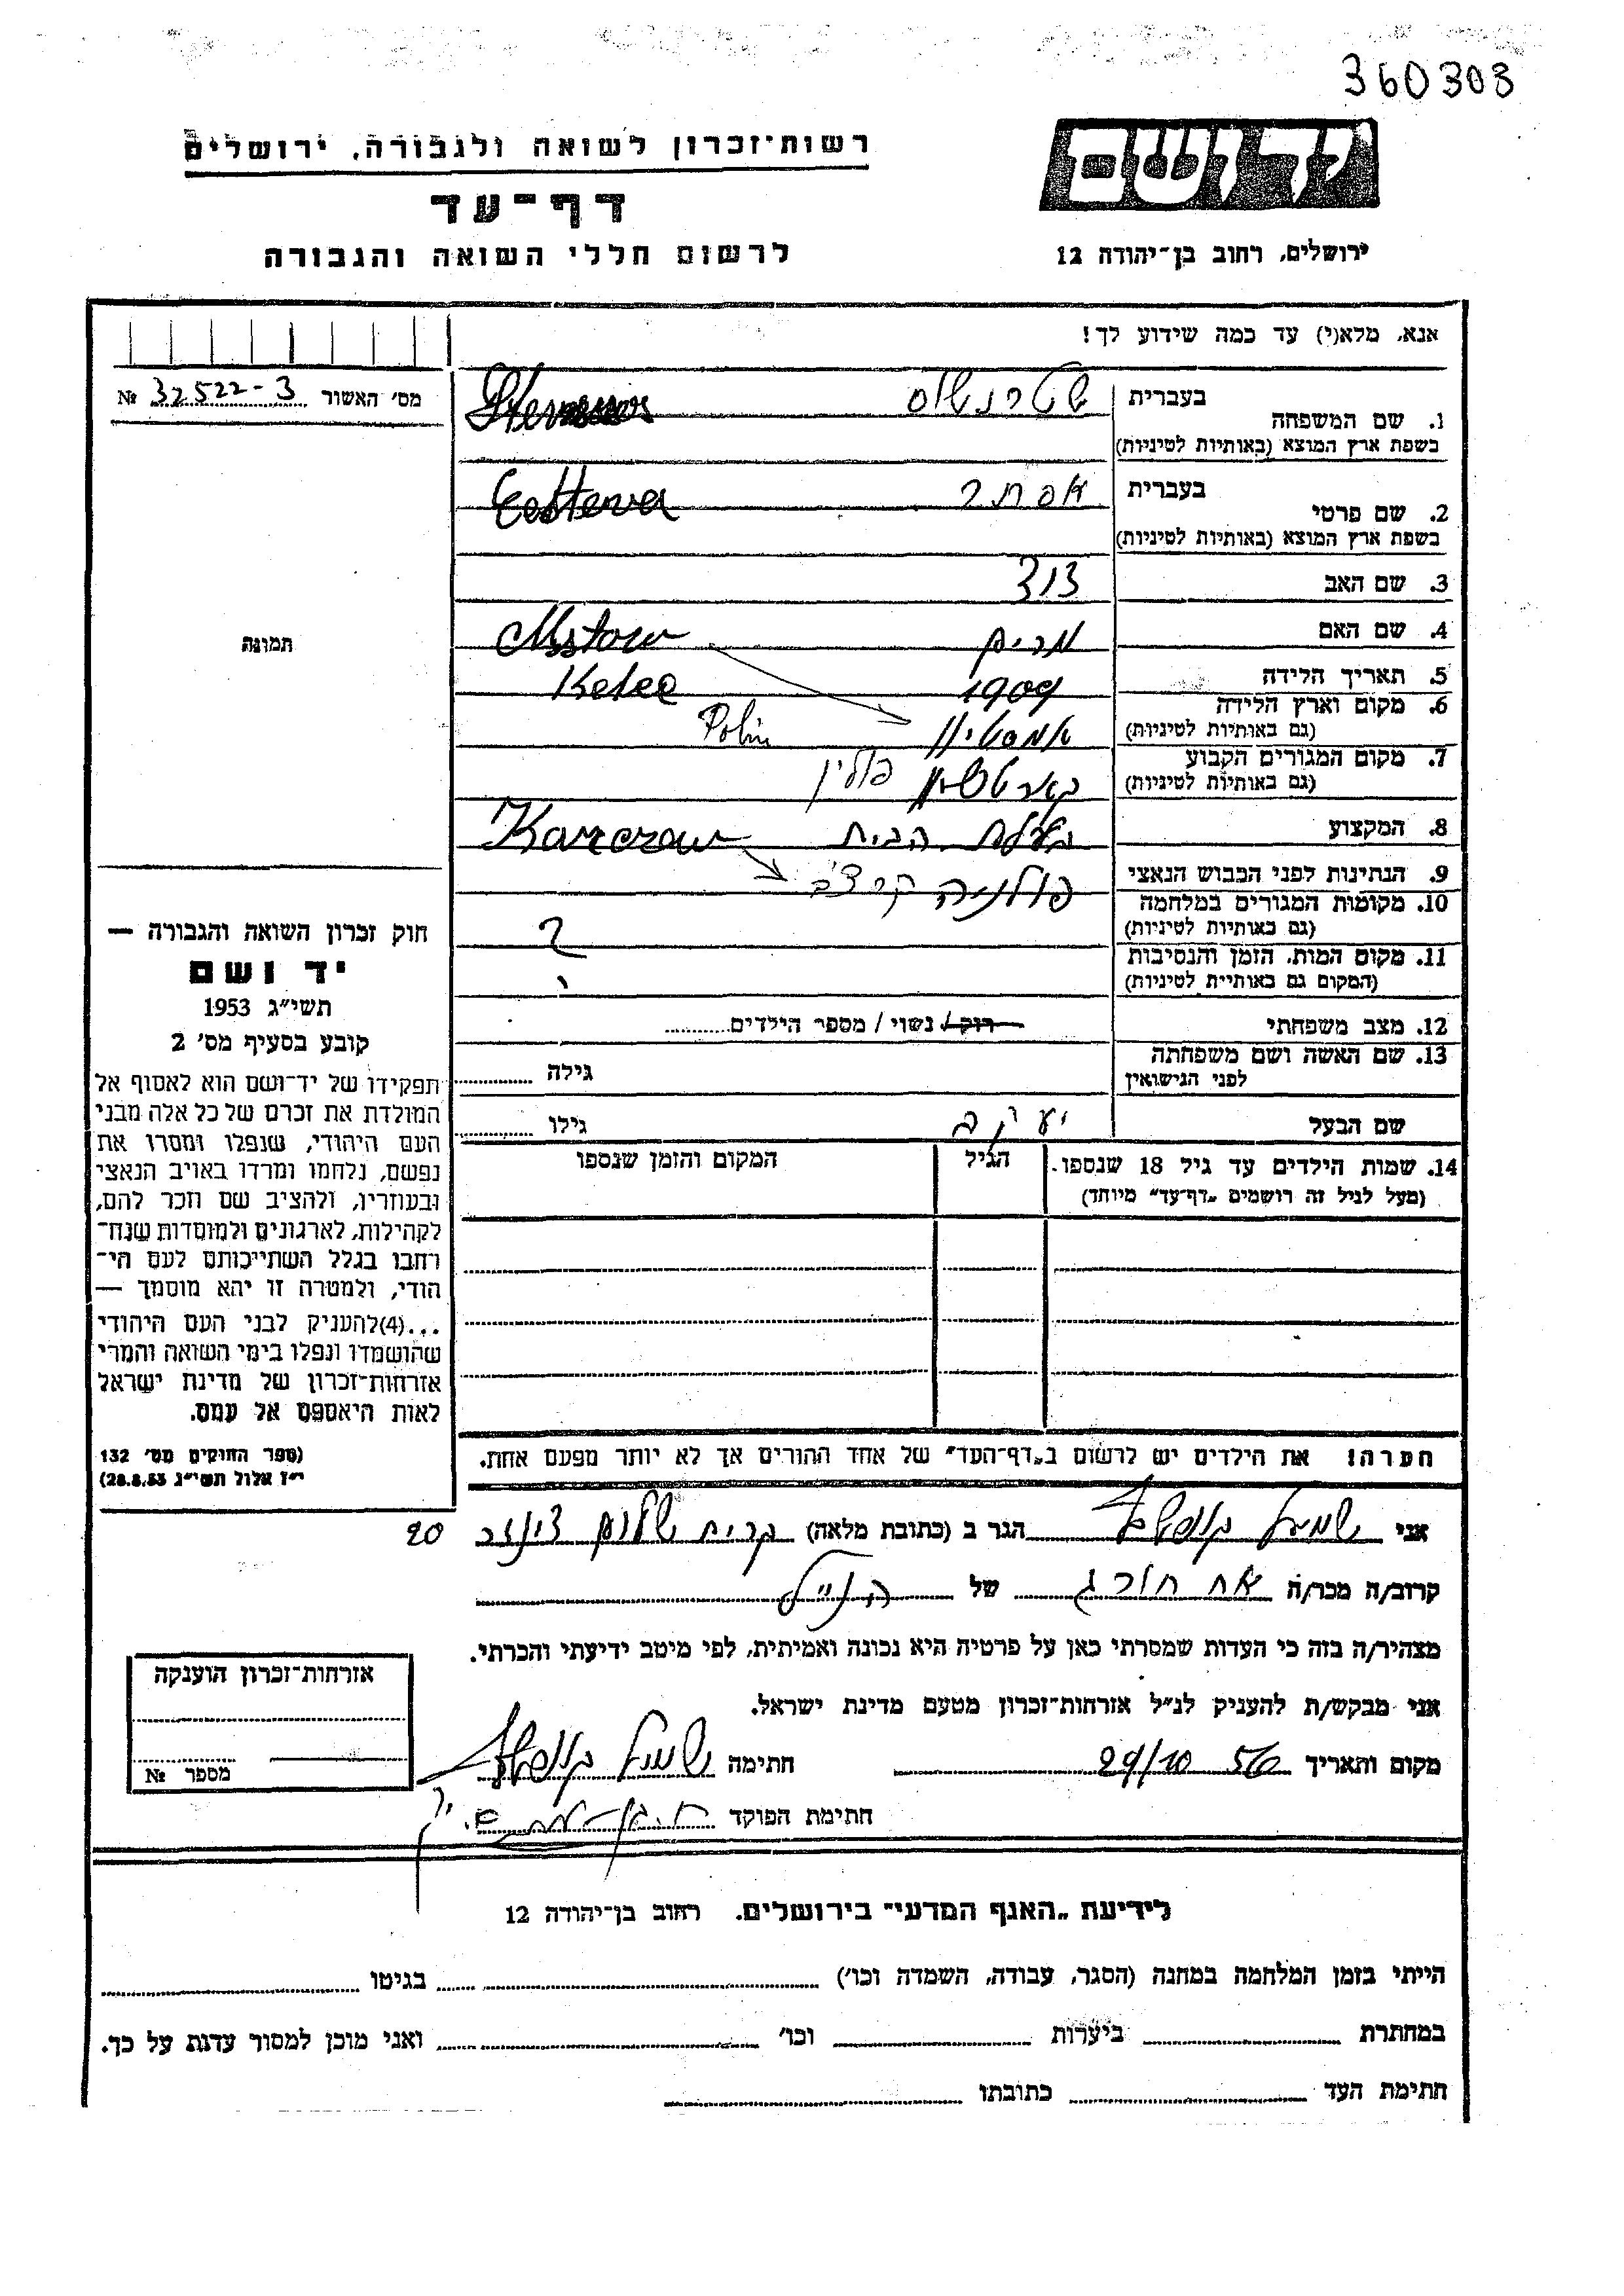 360303
רשות-זכרון לשואה ולגבורה, ירושלים
יד ושם
דף-עד
לרשום חללי השואה והגבורה
ירושלים, רחוב בן-יהודה 12
אנא, מלא(י) עד כמה שידוע לך!
מס' האשור 32522-3 №
תמונה
1. שם המשפחה
בעברית
בשפת ארץ המוצא (באותיות לטיניות)
2. שם פרטי
בעברית אסתר
בשפת ארץ המוצא (באותיות לטיניות)
3. שם האב דוד
4. שם האם מרים
5. תאריך הלידה 1909
6. מקום וארץ הלידה Polin
(גם באותיות לטיניות)
7. מקום המגורים הקבוע פולין
(גם באותיות לטיניות)
8. המקצוע בעלת הבית
9. הנתינות לפני הכבוש הנאצי פולניה
10. מקומות המגורים במלחמה
(גם באותיות לטיניות)
11. מקום המות, הזמן והנסיבות
(המקום גם באותיית לטיניות)
12. מצב משפחתי רוק / נשוי / מספר הילדים
13. שם האשה ושם משפחתה
לפני הנישואין גילה
שם הבעל יעקב גילו
14. שמות הילדים עד גיל 18 שנספו. הגיל המקום והזמן שנספו
(מעל לגיל זה רושמים "דף-עד" מיוחד)
חוק זכרון השואה והגבורה —
יד ושם
תשי"ג 1953
קובע בסעיף מס' 2
תפקידו של יד-ושם הוא לאסוף אל
המולדת את זכרם של כל אלה מבני
העם היהודי, שנפלו ומסרו את
נפשם, נלחמו ומרדו באויב הנאצי
ובעוזריו, ולהציב שם וזכר להם,
לקהילות, לארגונים ולמוסדות שנח-
רחבו בגלל השתייכותם לעם הי-
הודי, ולמטרה זו יהא מוסמך —
...(4)להעניק לבני העם היהודי
שהושמדו ונפלו בימי השואה והמרי
אזרחות-זכרון של מדינת ישראל
לאות היאספם אל עמם.
(ספר החוקים מס' 132
י"ז אלול תשי"ג 28.8.53)
הערה! את הילדים יש לרשום ב"דף-העד" של אחד ההורים אך לא יותר מפעם אחת.
אני שמואל הגר ב (כתובת מלאה) קרית שלום 20
קרוב/ה מכר/ה אח חורג של הנ"ל
מצהיר/ה בזה כי העדות שמסרתי כאן על פרטיה היא נכונה ואמיתית, לפי מיטב ידיעתי והכרתי.
אני מבקש/ת להעניק לנ"ל אזרחות-זכרון מטעם מדינת ישראל.
מקום ותאריך 29/10 56 חתימה שמואל
חתימת הפוקד
אזרחות-זכרון הוענקה
מספר №
לידיעת "האגף המדעי" בירושלים. רחוב בן-יהודה 12
הייתי בזמן המלחמה במחנה (הסגר, עבודה, השמדה וכו') בגיטו
במחתרת ביערות וכו' ואני מוכן למסור עדות על כך.
חתימת העד כתובתו